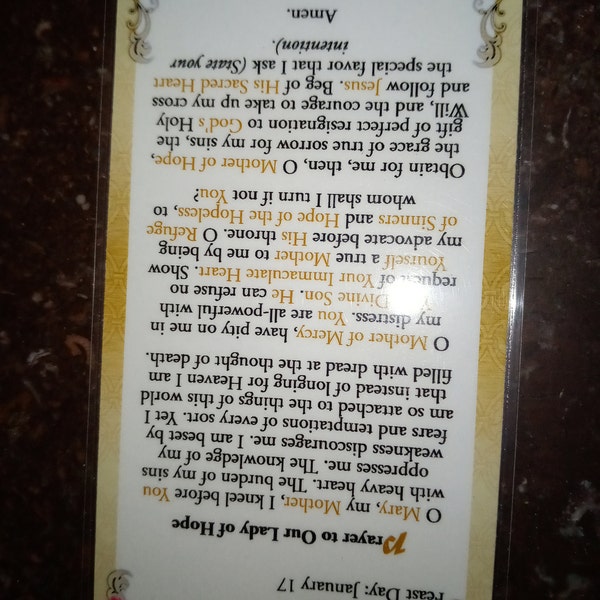 Feast Day: January 17
Prayer to Our Lady of Hope
O Mary, my Mother, I kneel before You
with heavy heart. The burden of my sins
oppresses me. The knowledge of my
weakness discourages me. I am beset by
fears and temptations of every sort. Yet I
am so attached to the things of this world
that instead of longing for Heaven I am
filled with dread at the thought of death.
O Mother of Mercy, have pity on me in
my distress. You are all-powerful with
Divine Son. He can refuse no
request of Your Immaculate Heart. Show
Yourself a true Mother to me by being
my advocate before His throne. O Refuge
of Sinners and Hope of the Hopeless, to
whom shall I turn if not You?
Obtain for me, then, O Mother of Hope,
the grace of true sorrow for my sins, the
gift of perfect resignation to God's Holy
Will, and the courage to take up my cross
and follow Jesus. Beg of His Sacred Heart
the special favor that I ask (State your
intention).
Amen.